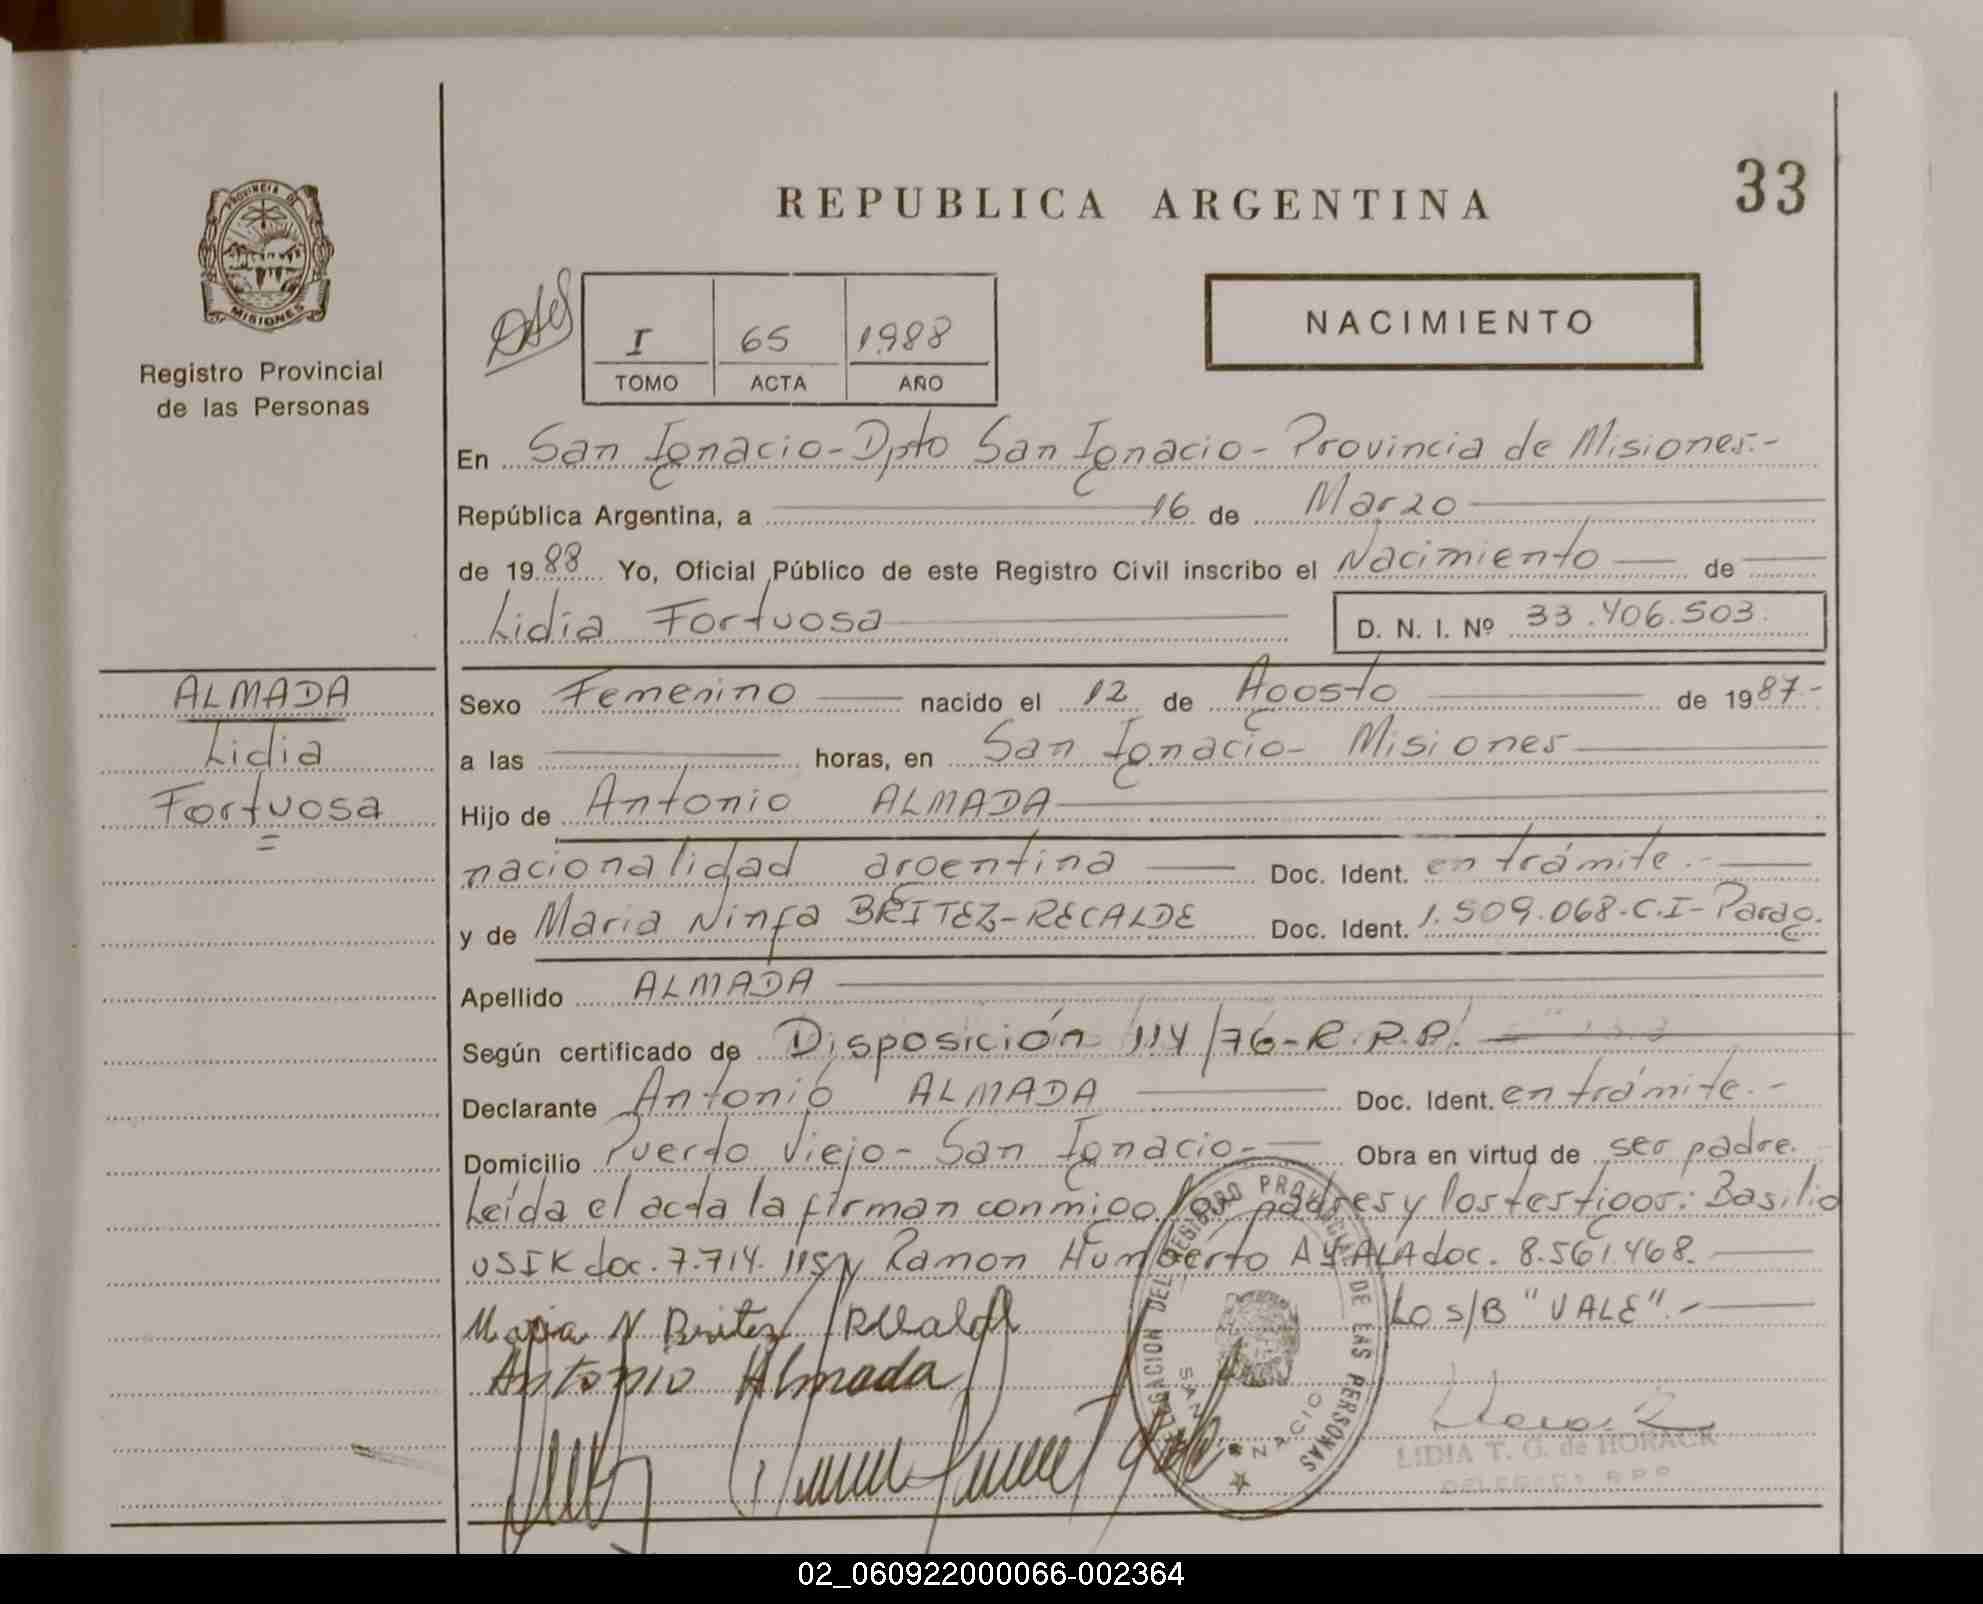 33
REPUBLICA ARGENTINA
PROVINCIA DE
MISIONES
Registro Provincial
de las Personas
I 65 1988
TOMO ACTA AÑO
NACIMIENTO
En San Ignacio-Dpto San Ignacio- Provincia de Misiones.-
República Argentina, a 16 de Marzo
de 1988 Yo, Oficial Público de este Registro Civil inscribo el Nacimiento de
Lidia Fortuosa D. N. I. Nº 33.406.503.
ALMADA
Lidia
Fortuosa
Sexo Femenino nacido el 12 de Agosto de 1987.-
a las horas, en San Ignacio- Misiones
Hijo de Antonio ALMADA
nacionalidad argentina Doc. Ident. en trámite.-
y de Maria Ninfa BRITEZ-RECALDE Doc. Ident. 1.509.068-C.I-Parag.
Apellido ALMADA
Según certificado de Disposición 114/76-R.P.P.
Declarante Antonio ALMADA Doc. Ident. en trámite.-
Domicilio Puerto Viejo- San Ignacio- Obra en virtud de ser padre.
Leída el acta la firman conmigo los padres y los testigos: Basilio
USIK doc. 7.714.115 y Ramon Humberto AYALA doc. 8.561.468.
Lo s/B "VALE".-
Maria N Britez Recalde
Antonio Almada
DELEGACION DEL REGISTRO PROVINCIAL DE LAS PERSONAS
SAN IGNACIO
LIDIA T. G. de HORACK
DELEGADA R.P.P.
02_060922000066-002364